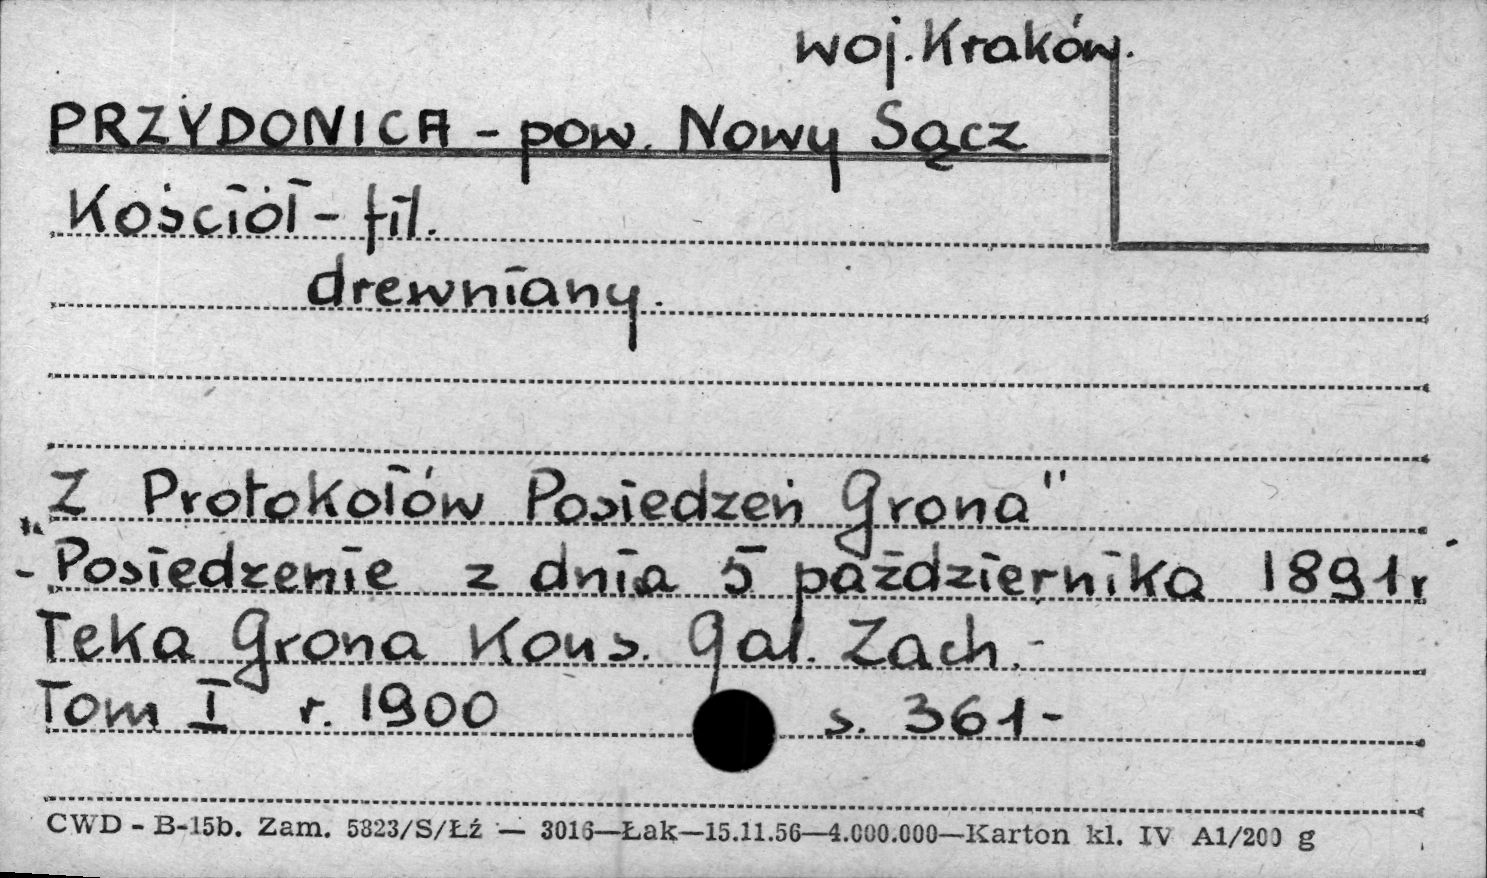 woj. Kraków.
PRZYDONICA - pow. Nowy Sącz
Kościół - fil.
drewniany.
"Z Protokołów Posiedzeń Grona"
- Posiedzenie z dnia 5 października 1891 r
Teka Grona Kons. Gal. Zach. -
Tom I r. 1900 s. 361 -
CWD - B-15b. Zam. 5823/S/Łź — 3016—Łak—15.11.56—4.000.000—Karton kl. IV A1/200 g